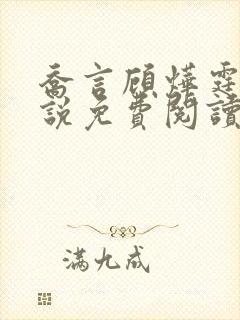 喬言顧燁霆
說免費閱讀
滿九成